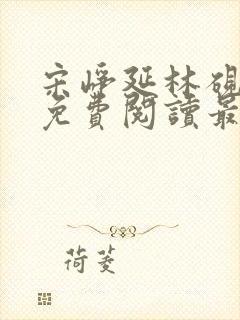 宋崢延林硯
免費閱讀最
荷菱